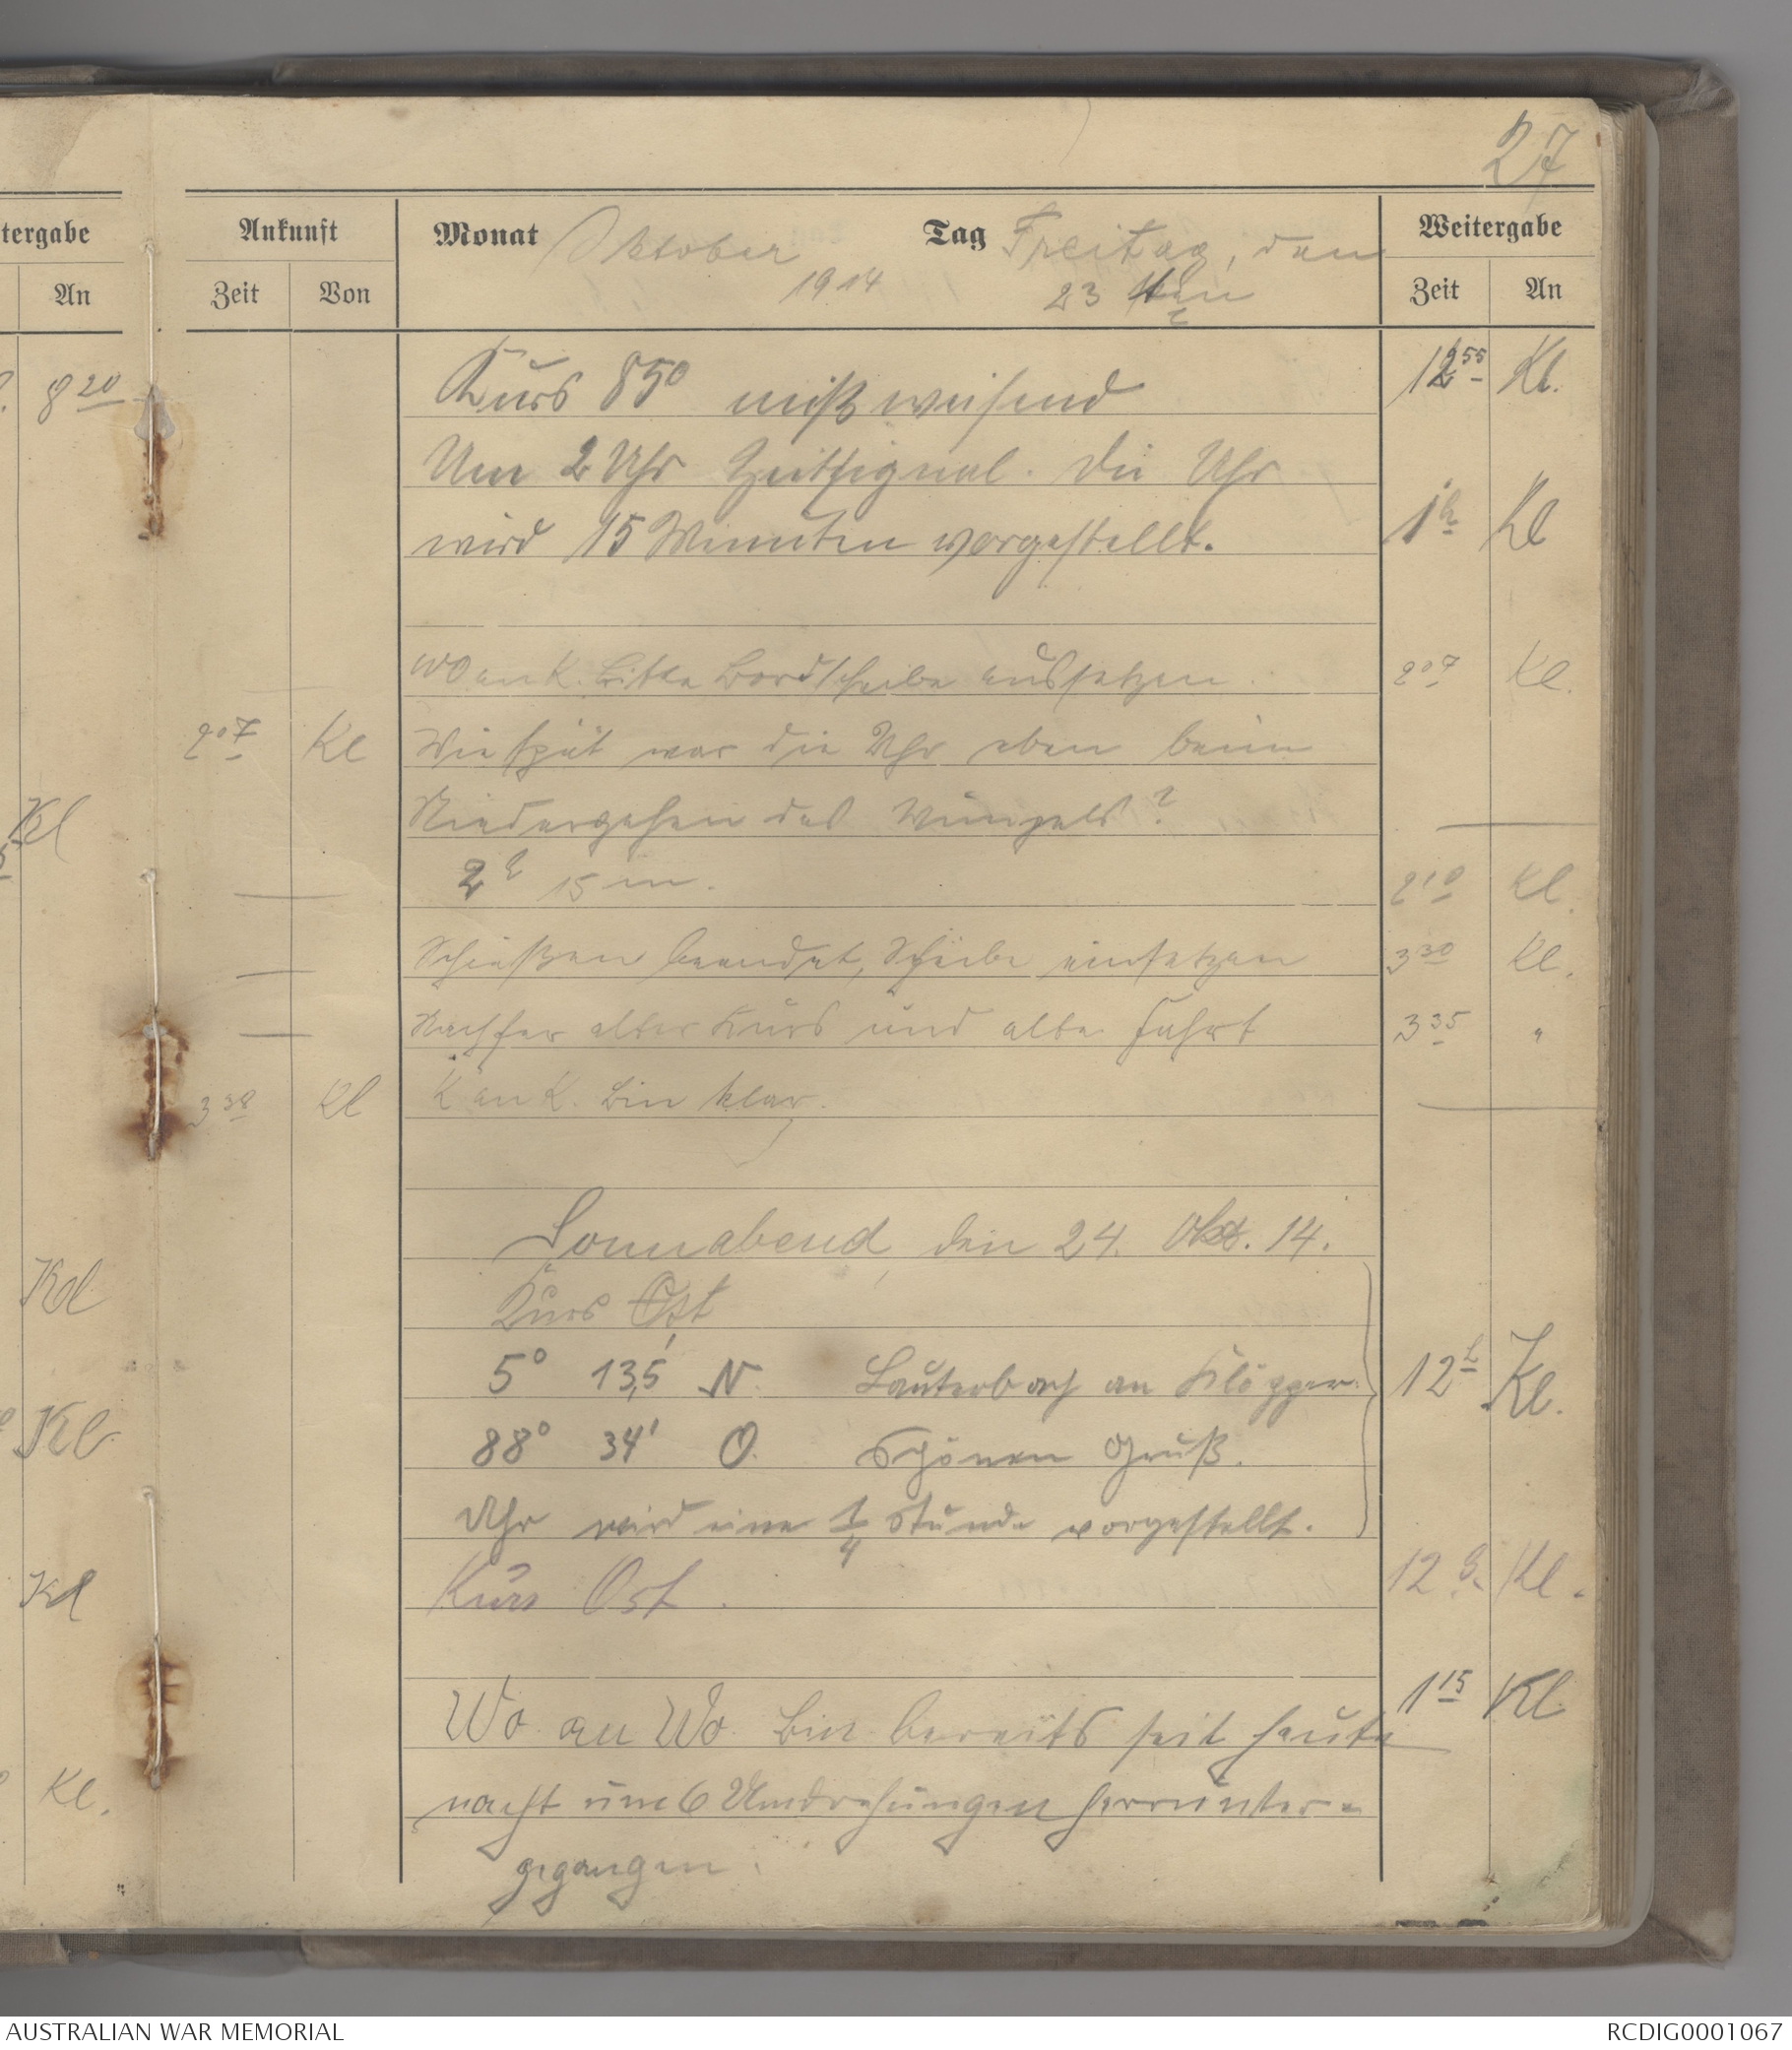 27
tergabe
An
8 20
Kl
Kl
Kl
Kl
Kl.
Ankunft
Monat Oktober 1914
Tag Freitag, den 23 ten
Weitergabe
Zeit Von
Zeit An
Kurs 85° mißweisend 12 55 Kl.
Um 2 Uhr Zeitsignal. Die Uhr
wird 15 Minuten vorgestellt. 1 h Kl
WO an K. Bitte Bordscheibe aussetzen. 2 07 Kl.
2 07 Kl Wie spät war die Uhr eben beim
Niedergehen des Wimpels?
2 h 15 m. 2 10 Kl.
Schießen beendet, Scheibe einsetzen 3 30 Kl.
Nachher alter Kurs und alte Fahrt 3 35 "
3 38 Kl K an K. Bin klar.
Sonnabend, den 24. Okt. 14.
Kurs Ost
5° 13,5' N. Lauterbach an Klöpper. 12 h Kl.
88° 34' O. Schönen Gruß.
Uhr wird eine 1/4 Stunde vorgestellt.
Kurs Ost. 12 Kl.
Wo an Wo. Bin bereits seit heute 1 15 Kl
nacht um 6 Umdrehungen herunter=
gegangen.
AUSTRALIAN WAR MEMORIAL
RCDIG0001067